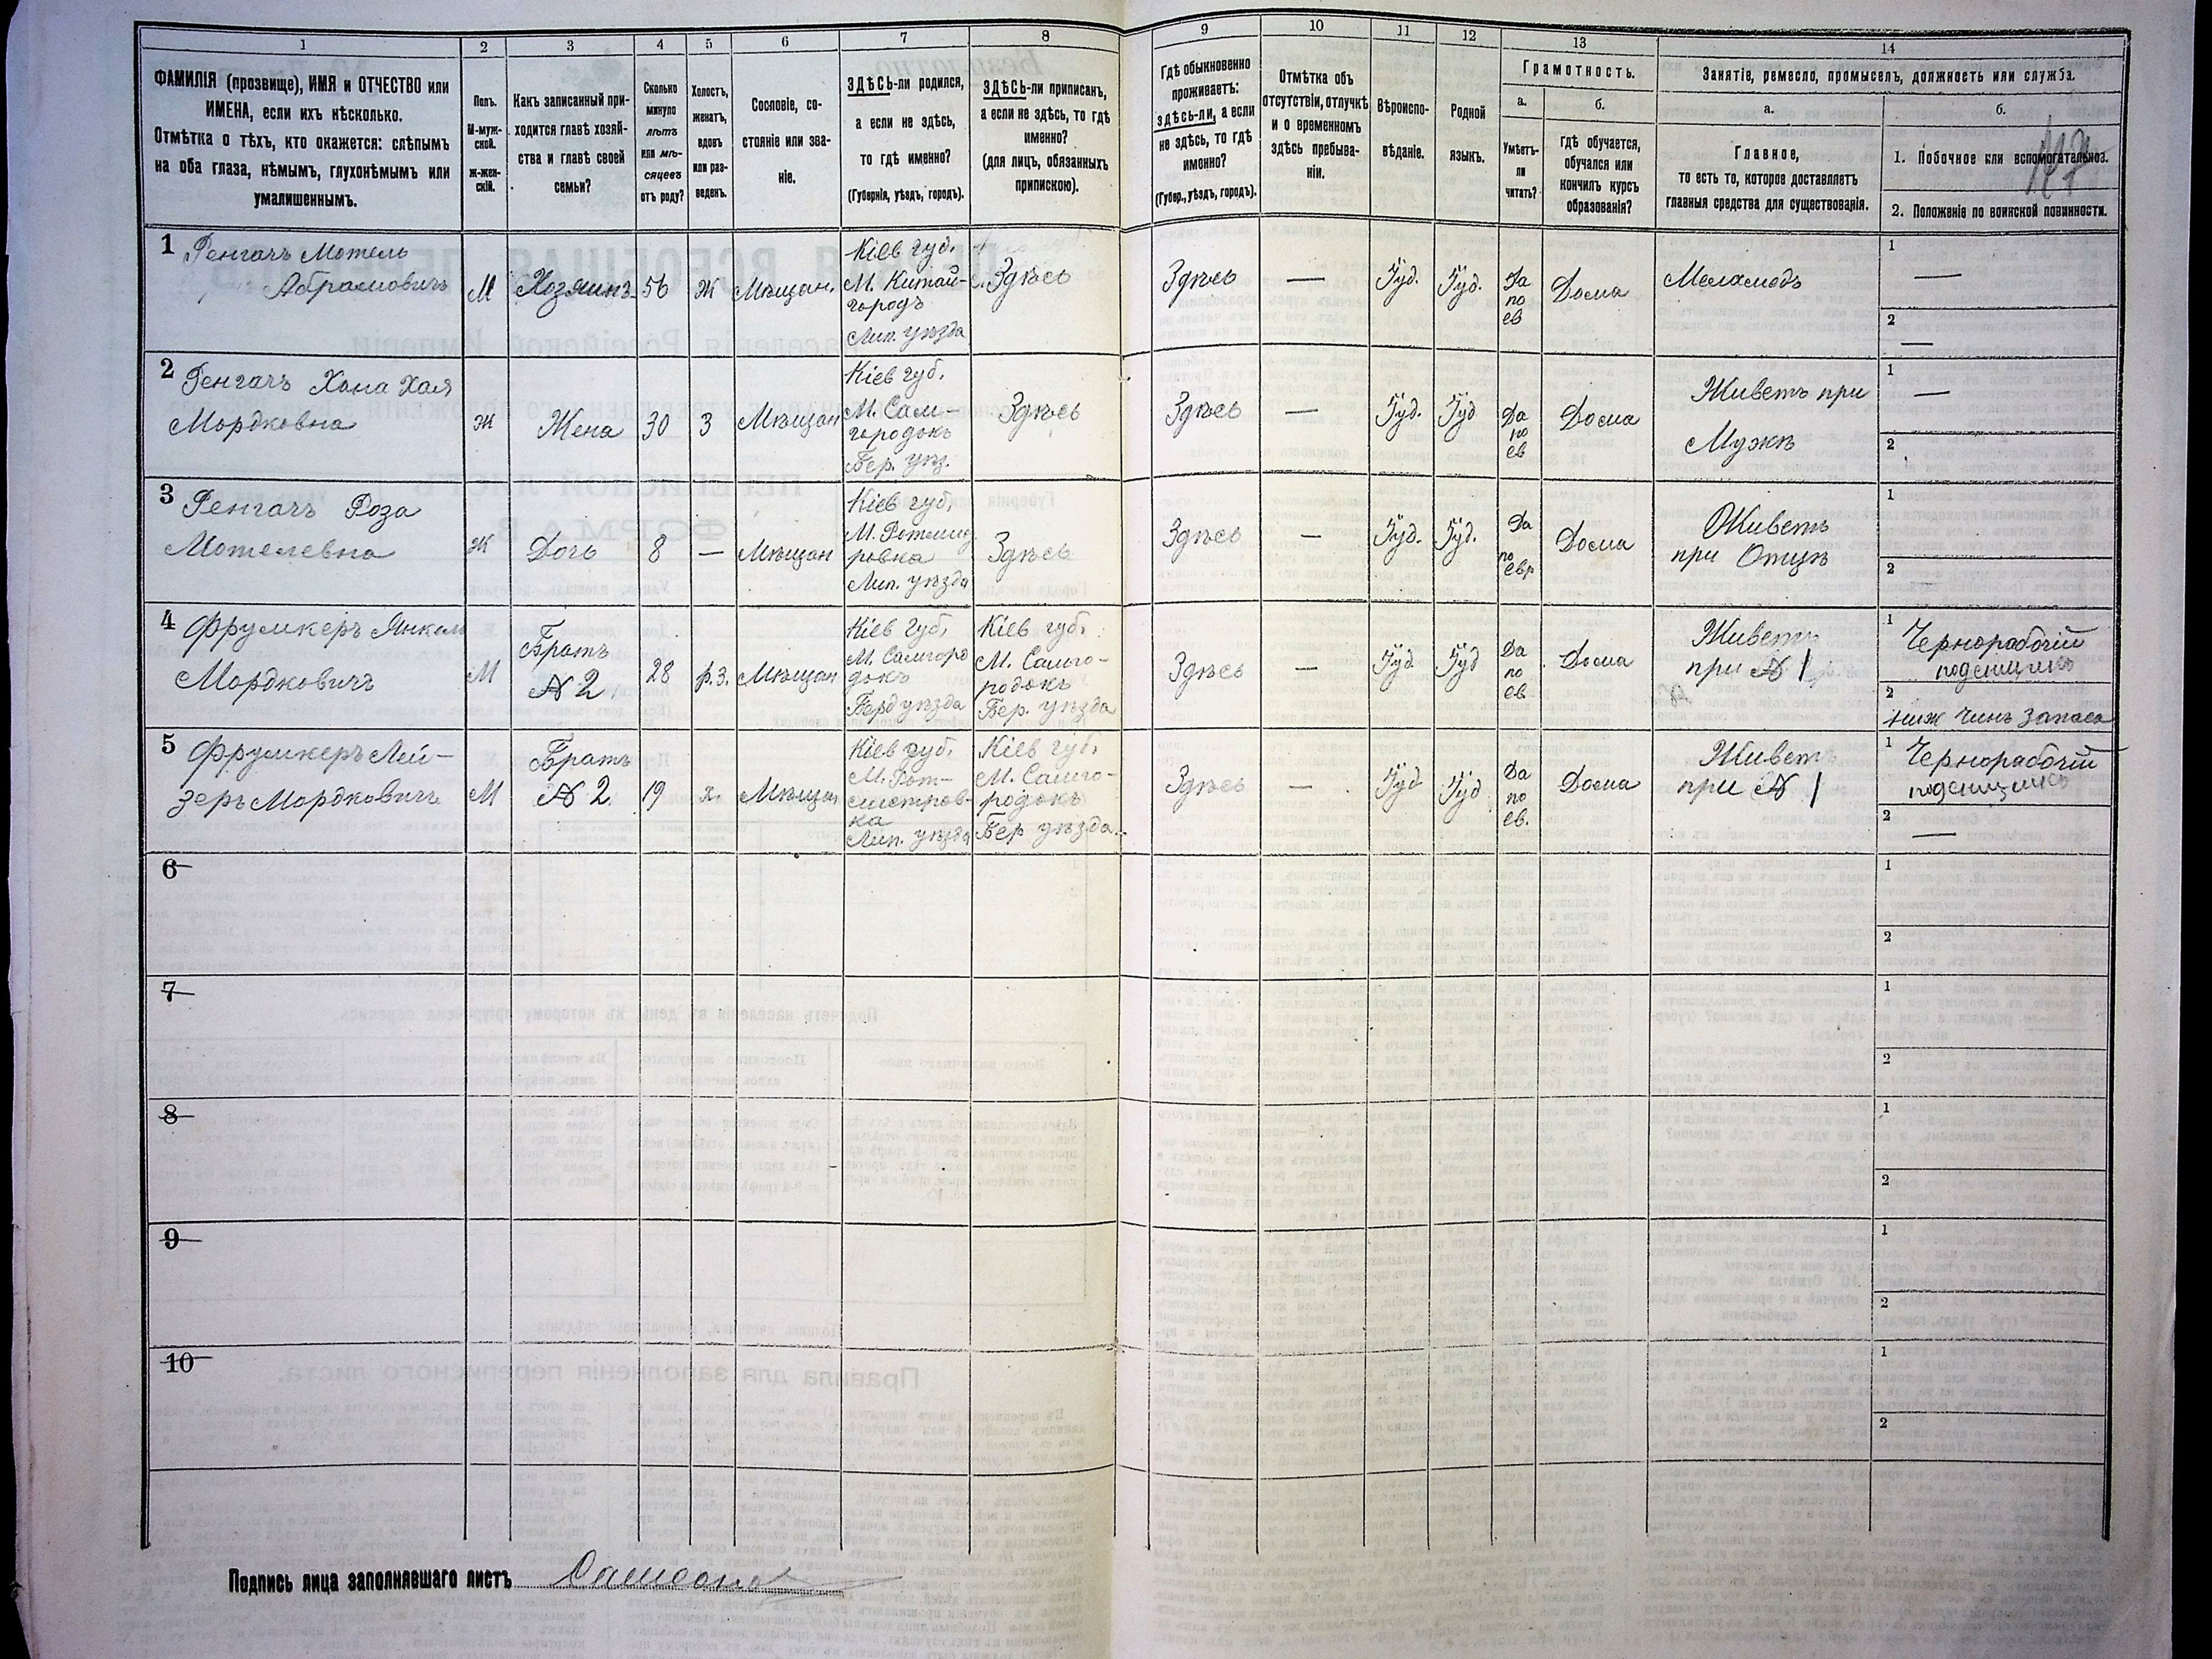 1 2 3 4 5 6 7 8 9 10 11 12 13 14
ФАМИЛІЯ (прозвище), ИМЯ и ОТЧЕСТВО или
ИМЕНА, если ихъ нѣсколько.
Отмѣтка о тѣхъ, кто окажется: слѣпымъ
на оба глаза, нѣмымъ, глухонѣмымъ или
умалишеннымъ.
Полъ.
М-муж-
ской.
Ж-жен-
скій.
Какъ записанный при-
ходится главѣ хозяй-
ства и главѣ своей
семьи?
Сколько
минуло
лѣтъ
или мѣ-
сяцевъ
отъ роду?
Холостъ,
женатъ,
вдовъ
или раз-
веденъ.
Сословіе, со-
стояніе или зва-
ніе.
ЗДѢСЬ-ли родился,
а если не здѣсь,
то гдѣ именно?
(Губернія, уѣздъ, городъ).
ЗДѢСЬ-ли приписанъ,
а если не здѣсь, то гдѣ
именно?
(для лицъ, обязанныхъ
припискою).
Гдѣ обыкновенно
проживаетъ:
здѣсь-ли, а если
не здѣсь, то гдѣ
именно?
(Губер., уѣздъ, городъ).
Отмѣтка объ
отсутствіи, отлучкѣ
и о временномъ
здѣсь пребыва-
ніи.
Вѣроиспо-
вѣданіе.
Родной
языкъ.
Грамотность.
а.
Умѣетъ-
ли
читать?
б.
Гдѣ обучается,
обучался или
кончилъ курсъ
образованія?
Занятіе, ремесло, промыселъ, должность или служба.
а.
Главное,
то есть то, которое доставляетъ
главныя средства для существованія.
б.
1. Побочное или вспомогательное.
2. Положеніе по воинской повинности.
1 Ренгачъ Мотель
Абрамовичъ
М
Хозяинъ
56
Ж
Мѣщан.
Кіев губ.
М. Китай-
городъ
Лип. уѣзда
Здѣсь
Здѣсь
—
Іуд.
Іуд.
Да
по
ев
Дома
Меламедъ
1
—
2
—
2 Ренгачъ Хона Хая
Мордковна
Ж
Жена
30
З
Мѣщан
Кіев губ.
М. Сам-
городокъ
Бер. уѣз.
Здѣсь
Здѣсь
—
Іуд.
Іуд
Да
по
ев
Дома
Живетъ при
Мужѣ
1
—
2
3 Ренгачъ Роза
Мотелевна
Ж
Дочь
8
—
Мѣщан
Кіев губ.
М. Ротмист
ровка
Лип. уѣзда
Здѣсь
Здѣсь
—
Іуд.
Іуд.
Да
по
евр
Дома
Живетъ
при Отцѣ
1
2
4 Фрумкеръ Янкель
Мордковичъ
М
Братъ
№ 2
28
р.з.
Мѣщан
Кіев губ.
М. Самгоро
докъ
Берд уѣзда
Кіев губ.
М. Самго-
родокъ
Бер. уѣзда
Здѣсь
—
Іуд
Іуд
Да
по
ев.
Дома
Живетъ
при № 1
1
Чернорабочій
поденщикъ
2
ниж чинъ запаса
5 Фрумкеръ Лей-
зеръ Мордковичъ
М
Братъ
№ 2
19
х.
Мѣщан
Кіев губ.
М. Рот-
мистров-
ка
Лип. уѣзда
Кіев губ.
М. Самго-
родокъ
Бер уѣзда
Здѣсь
—
Іуд
Іуд
Да
по
ев.
Дома
Живетъ
при № 1
1
Чернорабочій
поденщикъ
2
—
6
1
2
7
1
2
8
1
2
9
1
2
10
1
2
Подпись лица заполнявшаго листъ